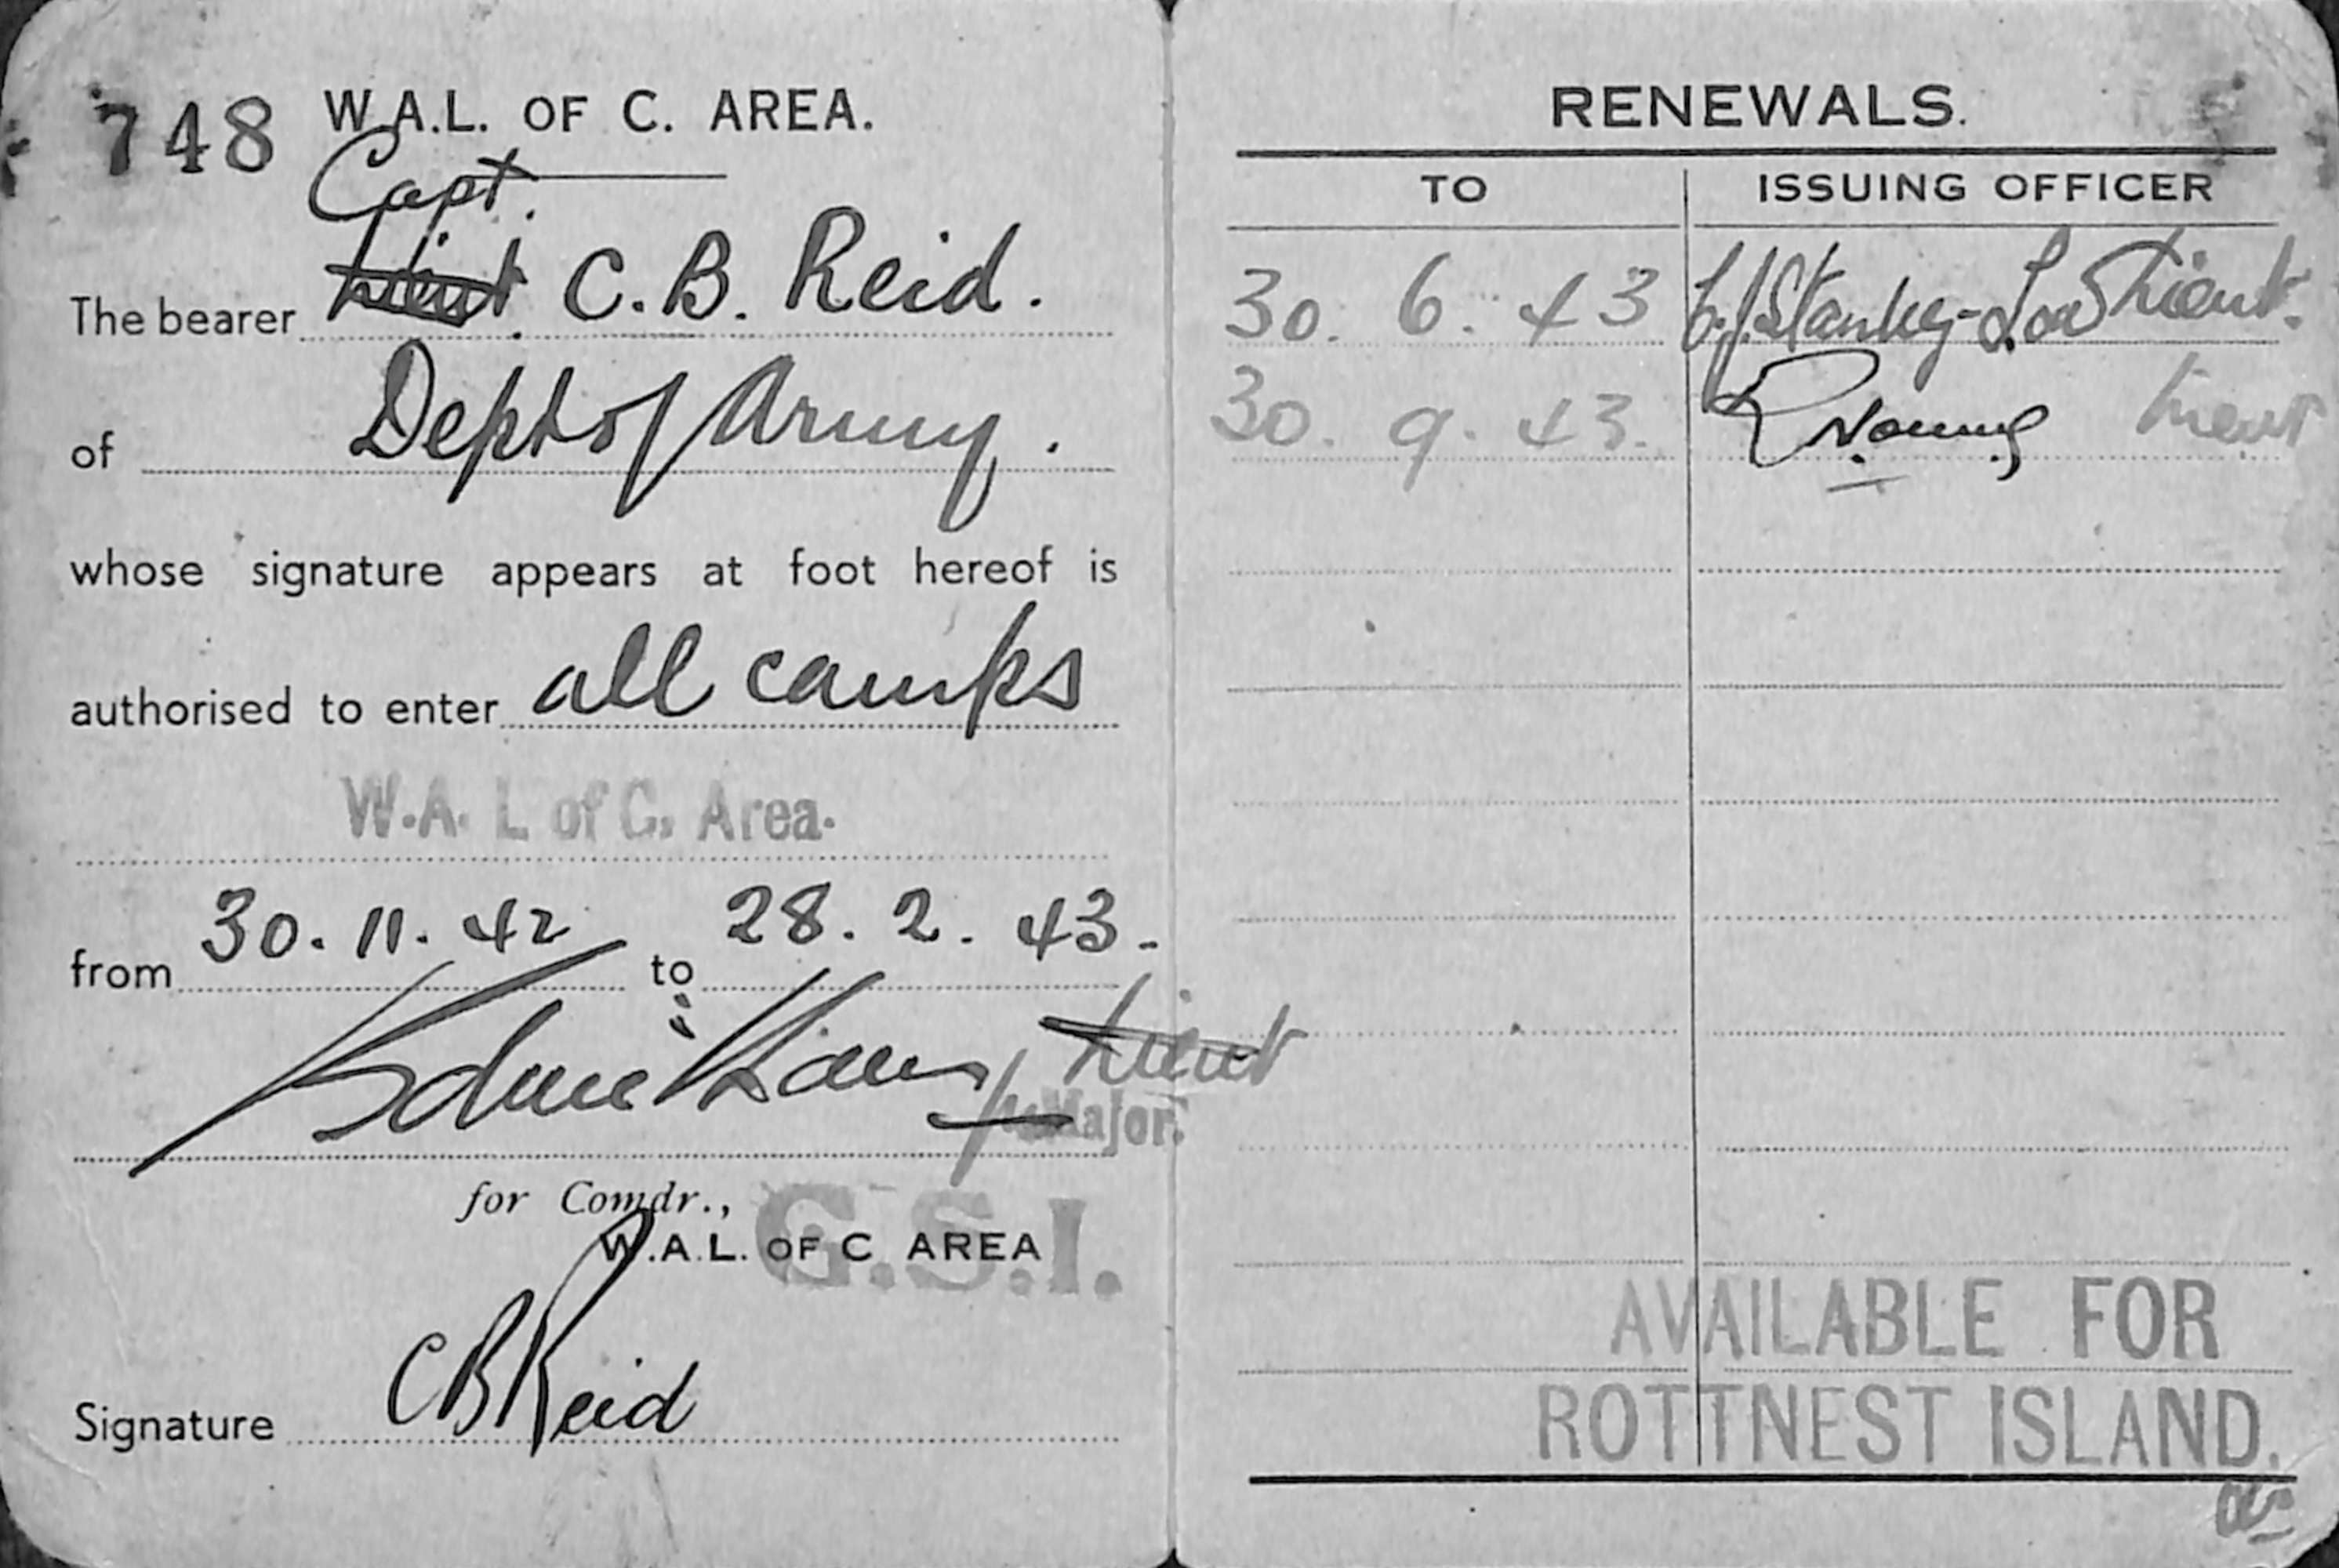 748 W.A.L. OF C. AREA.
Capt.
The bearer Lieut. C. B. Reid.
of Dept of Army.
whose signature appears at foot hereof is
authorised to enter all camps
W.A. L of C. Area.
from 30. 11. 42 to 28. 2. 43.
Lieut
Major.
for Comdr.,
W.A.L. OF C AREA
G.S.I.
Signature CB Reid
RENEWALS.
TO ISSUING OFFICER
30. 6. 43 Stanley-Low Lieut.
30. 9. 43. Young Lieut
AVAILABLE FOR
ROTTNEST ISLAND.